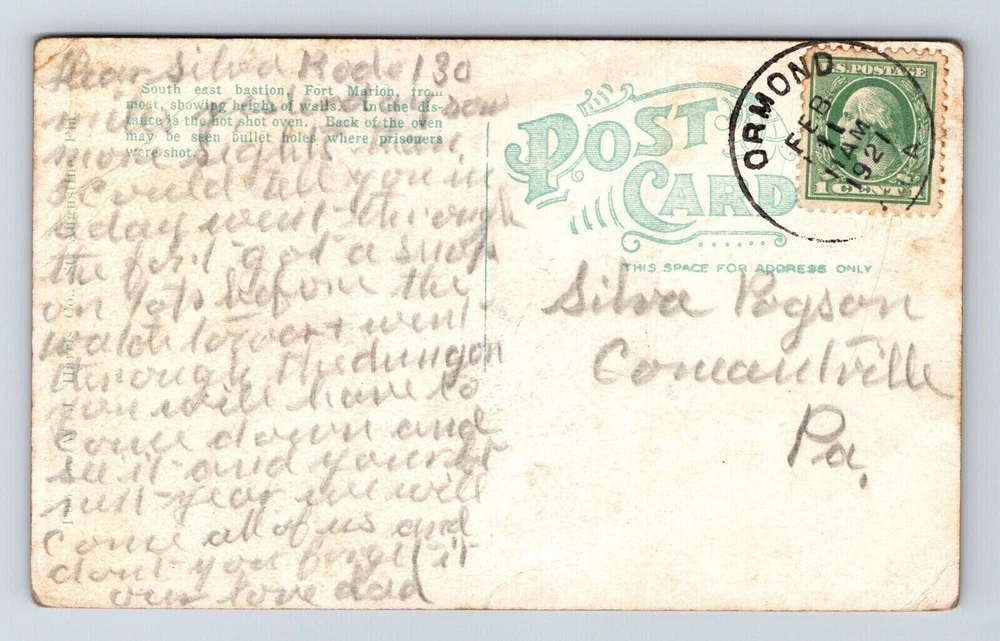 Dear Silva Rode 130
South east bastion, Fort Marion, from
moat, showing height of walls. In the dis-
tance is the hot shot oven. Back of the oven
may be seen bullet holes where prisoners
were shot.
miles
more sights than
I could tell you in
a day went through
the fort got a snap
on top before the
watch tower + went
through the dungon
you will have to
come down and
se it and yourst
nuxt year we will
come all of us and
dont you forgt it
our love dad
St. Augustine, Fla.
POST CARD
THIS SPACE FOR ADDRESS ONLY
ORMOND
FEB
11
11 AM
1921
U.S. POSTAGE
1 CENT 1
Silva Pogson
Comeautville
Pa.